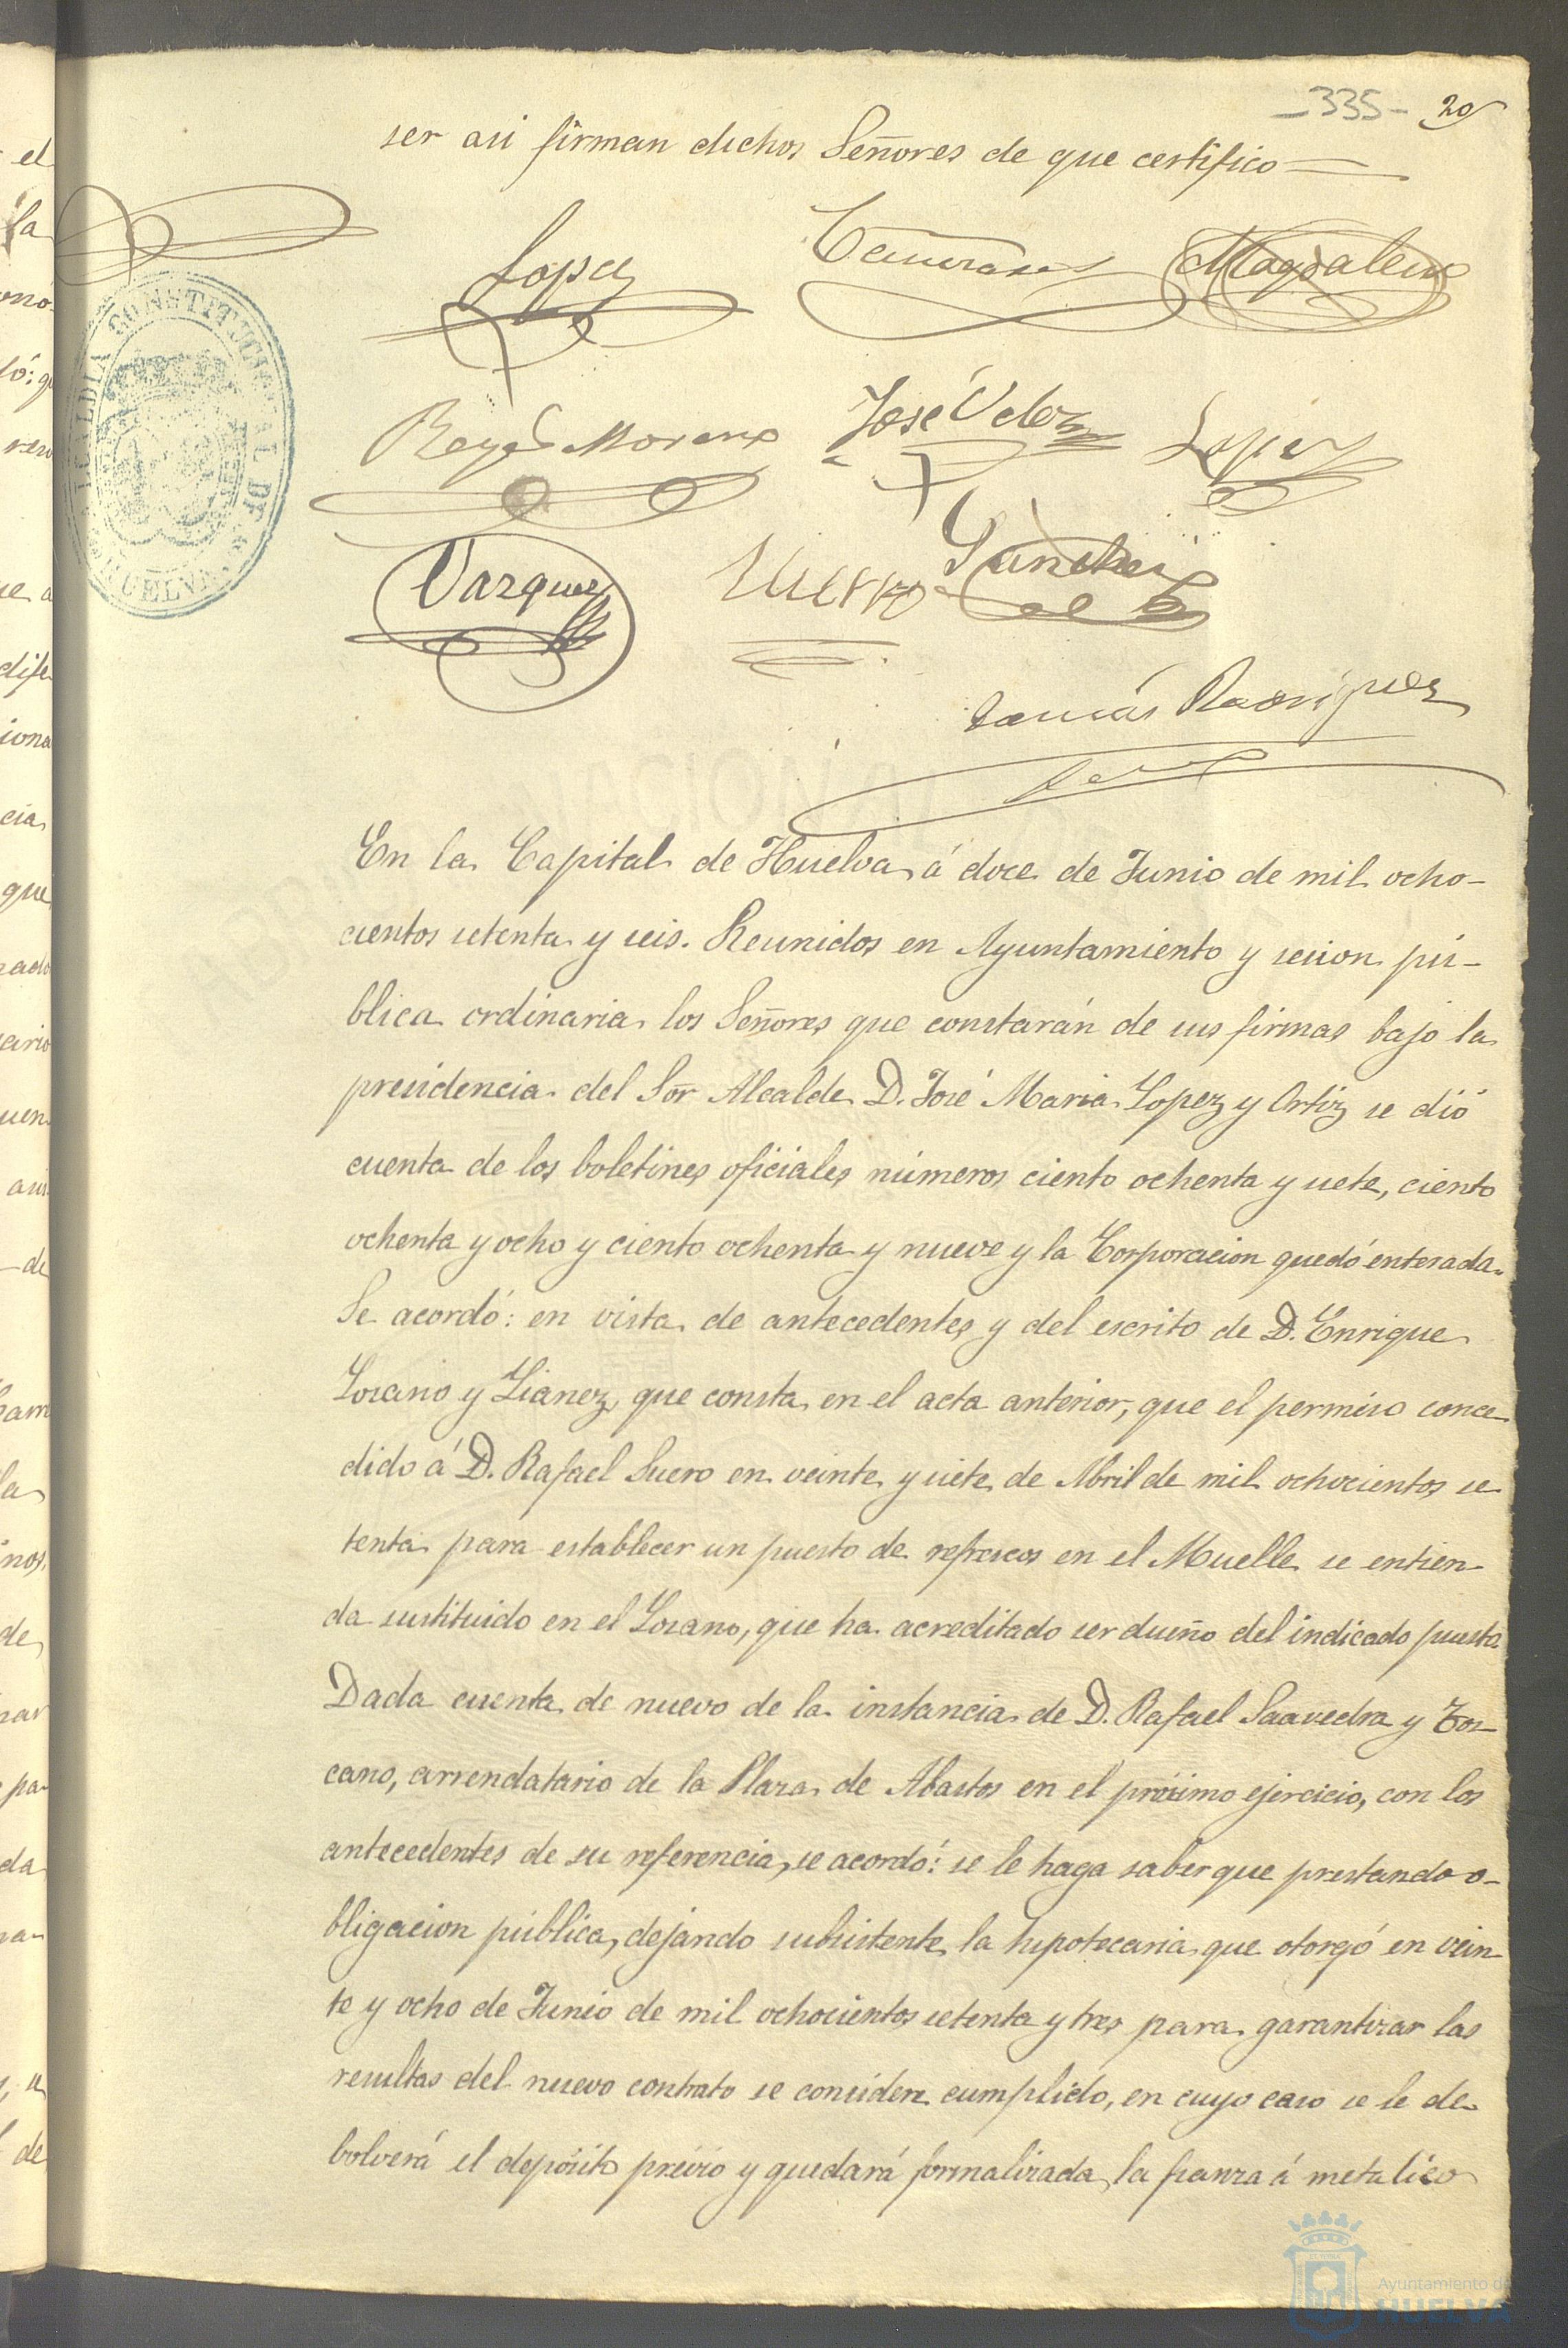 -335- 20
ser asi firman dichos Señores de que certifico
Lopez
Magdaleno
Reyes Moreno
José Velez
Lopez
Vazquez
Sanchez
Tomás Rodriguez
ALCALDIA CONSTITUCIONAL DE HUELVA
En la Capital de Huelva á doce de Junio de mil ocho-
cientos setenta y seis. Reunidos en Ayuntamiento y sesion pú-
blica ordinaria los Señores que constarán de sus firmas bajo la
presidencia del Sor Alcalde D. José Maria Lopez y Ortiz se dió
cuenta de los boletines oficiales números ciento ochenta y siete, ciento
ochenta y ocho y ciento ochenta y nueve y la Corporacion quedó enterada.
Se acordó: en vista de antecedentes y del escrito de D. Enrique
Lozano y Lianez, que consta en el acta anterior, que el permiso conce-
dido á D. Rafael Suero en veinte y siete de Abril de mil ochocientos se-
tenta para establecer un puesto de refrescos en el Muelle se entien-
da sustituido en el Lozano, que ha acreditado ser dueño del indicado puesto
Dada cuenta de nuevo de la instancia de D. Rafael Saavedra y Tos-
cano, arrendatario de la Plaza de Abastos en el próximo ejercicio, con los
antecedentes de su referencia, se acordó: se le haga saber que prestando o-
bligacion pública, dejando subsistente la hipotecaria que otorgó en vein-
te y ocho de Junio de mil ochocientos setenta y tres para garantizar las
resultas del nuevo contrato se considere cumplido, en cuyo caso se le de-
bolverá el depósito prévio y quedará formalizada la fianza á metalico
Ayuntamiento de
HUELVA